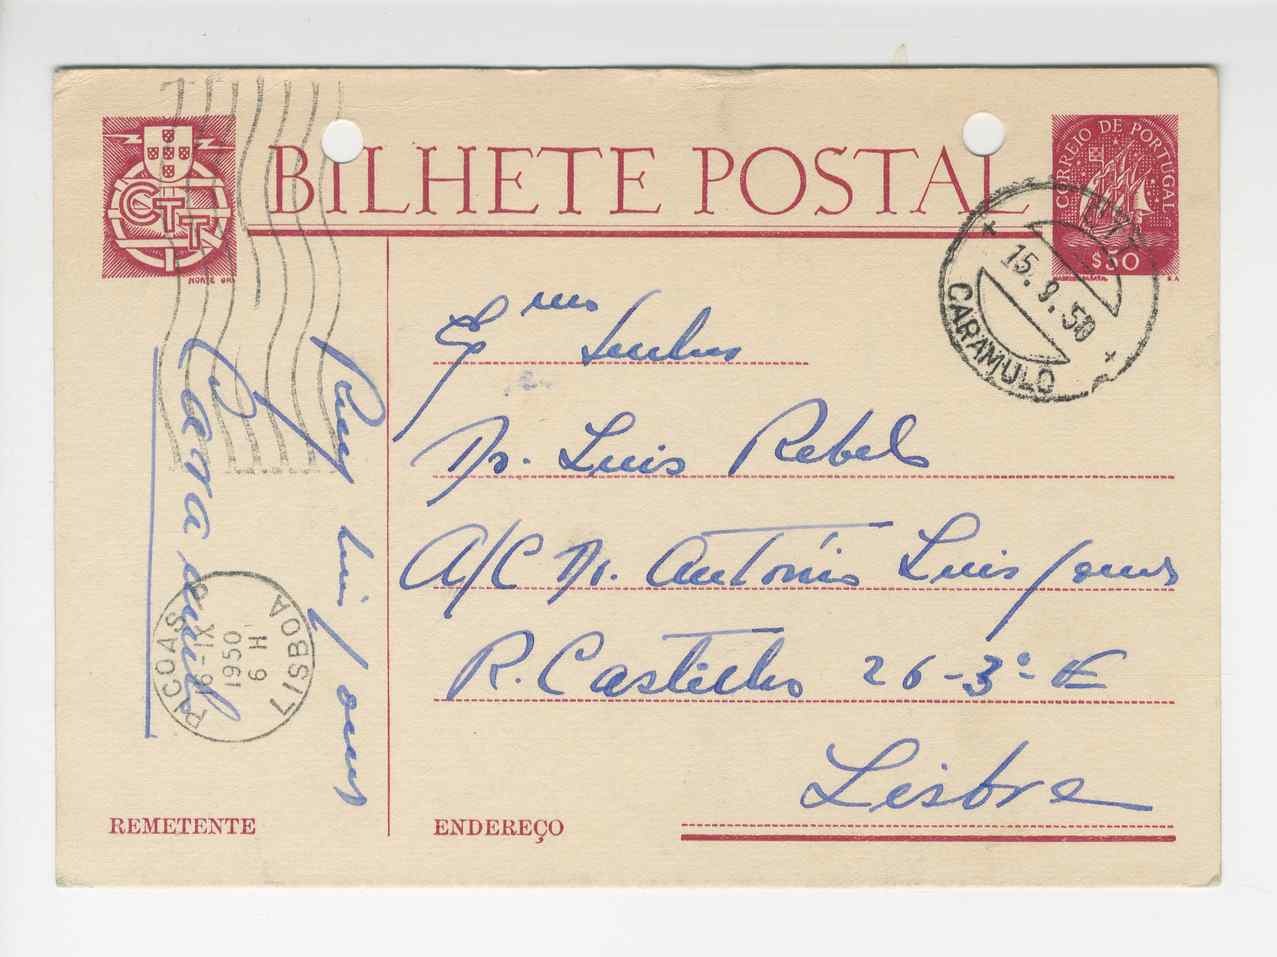 CTT
BILHETE POSTAL
CORREIO DE PORTUGAL
$50
CTT
15.9.50
CARAMULO
Exmo Senhor
Dr. Luis Rebelo
A/C Dr. António Luis Gomes
R. Castilho 26-3º E
Lisboa
Ruy Luis Gomes
Caramulo
PICOAS
16-IX
1950
6 H
LISBOA
REMETENTE
ENDEREÇO